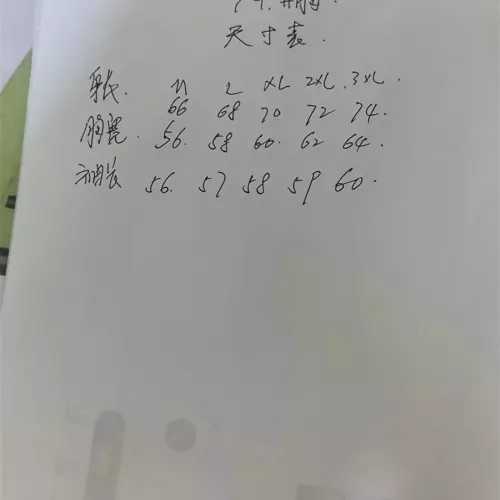 尺寸表.
身长. M L XL 2XL. 3XL.
66 68 70 72 74.
胸宽. 56. 58 60. 62 64.
袖长 56. 57 58 59 60.